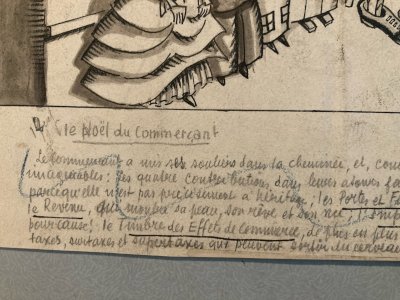 14 le Noël du Commerçant
Le commerçant a mis ses souliers dans la cheminée, et, com
imaginables: les quatre contributions, dans leurs atours fa
parce qu'elle n'est pas précisément à héritier; les Portes et Fe
le Revenu, qui montre sa peau, son rêve et son nu
pour cause! le Timbre des Effets de Commerce, de plus en plus
taxes, surtaxes et supertaxes qui peuvent sortir du cerveau